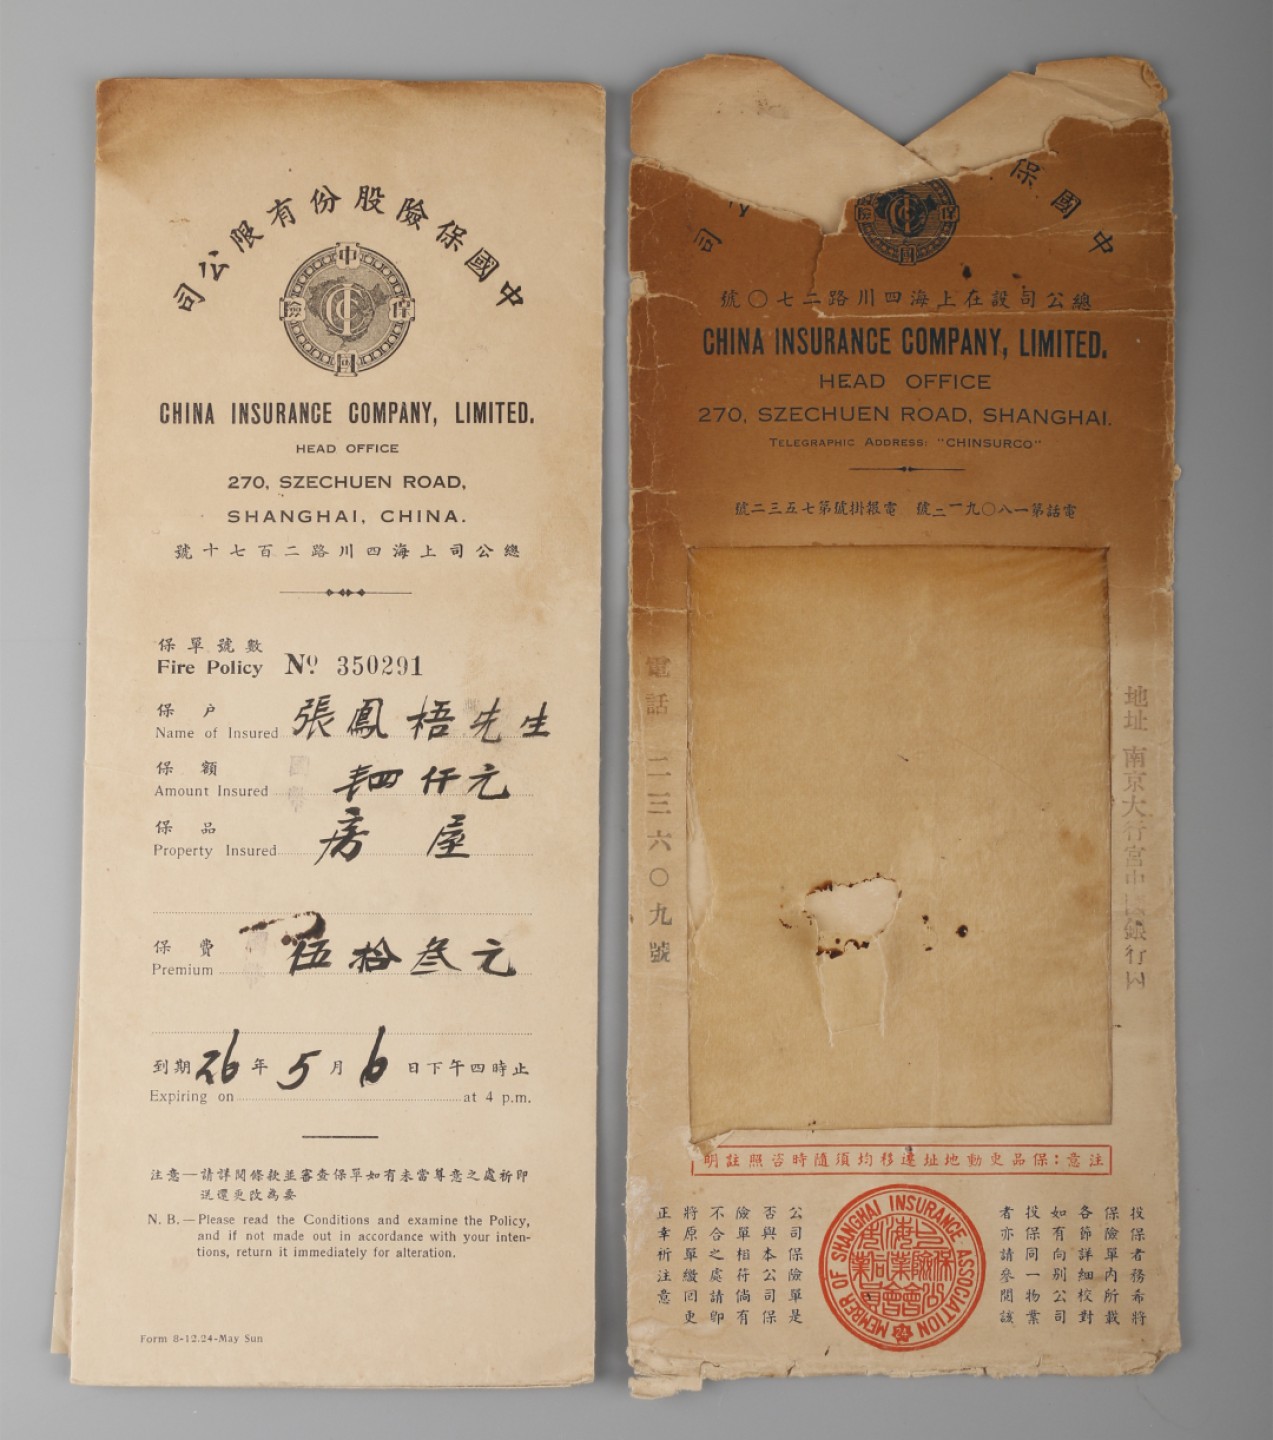 中國保險股份有限公司
中國保險
CIC
CHINA INSURANCE COMPANY, LIMITED.
HEAD OFFICE
270, SZECHUEN ROAD,
SHANGHAI, CHINA.
總公司上海四川路二百七十號
保單號數
Fire Policy Nº 350291
保戶
Name of Insured 張鳳梧先生
保額
Amount Insured 四仟元
保品
Property Insured 房屋
保費
Premium 伍拾叁元
到期 26 年 5 月 6 日下午四時止
Expiring on at 4 p.m.
注意—請詳閱條款並審查保單如有未當尊意之處祈即
送還更改為要
N. B.—Please read the Conditions and examine the Policy,
and if not made out in accordance with your inten-
tions, return it immediately for alteration.
Form 8-12.24-May Sun
中國保 公司
保國險
CIC
總公司設在上海四川路二七〇號
CHINA INSURANCE COMPANY, LIMITED.
HEAD OFFICE
270, SZECHUEN ROAD, SHANGHAI.
TELEGRAPHIC ADDRESS: "CHINSURCO"
電話第一八〇九一二號 電報掛號第七五三二號
地址 南京大行宮中國銀行內
電話 二二三六〇九號
注意:保品更動地址遷移均須隨時咨照註明
投保者務希將
保險單內所載
各節詳細校對
如有向別公司
投保同一物業
者亦請參閱該
公司保險單是
否與本公司保
險單相符倘有
不合之處請即
將原單繳回更
正幸祈注意
MEMBER OF SHANGHAI INSURANCE ASSOCIATION
上海保險業同業公會會員